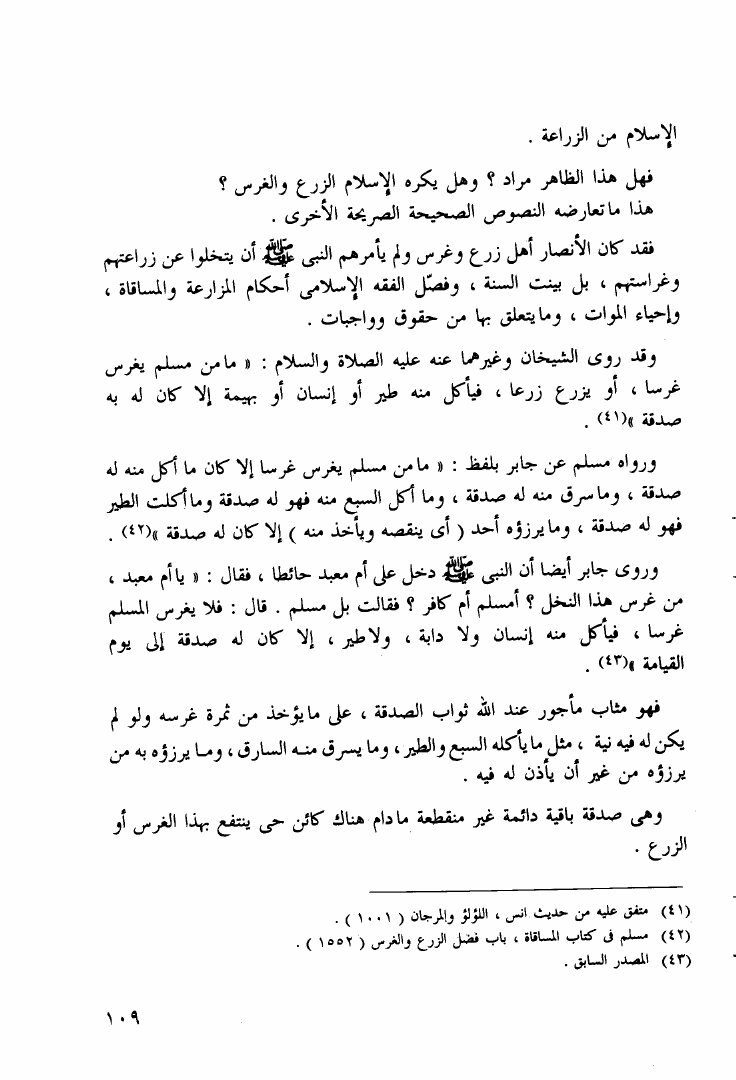 الإسلام من الزراعة .
فهل هذا الظاهر مراد ؟ وهل يكره الإسلام الزرع والغرس ؟
هذا ماتعارضه النصوص الصحيحة الصريحة الأخرى .
فقد كان الأنصار أهل زرع وغرس ولم يأمرهم النبى ﷺ أن يتخلوا عن زراعتهم
وغراستهم ، بل بينت السنة ، وفصّل الفقه الإسلامى أحكام المزارعة والمساقاة ،
وإحياء الموات ، ومايتعلق بها من حقوق وواجبات .
وقد روى الشيخان وغيرهما عنه عليه الصلاة والسلام : « مامن مسلم يغرس
غرسا ، أو يزرع زرعا ، فيأكل منه طير أو إنسان أو بهيمة إلا كان له به
صدقة »(٤١) .
ورواه مسلم عن جابر بلفظ : « مامن مسلم يغرس غرسا إلا كان ما أكل منه له
صدقة ، وماسرق منه له صدقة ، وما أكل السبع منه فهو له صدقة وماأكلت الطير
فهو له صدقة ، ومايرزؤه أحد ( أى ينقصه ويأخذ منه ) إلا كان له صدقة »(٤٢) .
وروى جابر أيضا أن النبى ﷺ دخل على أم معبد حائطا ، فقال : « ياأم معبد ،
من غرس هذا النخل ؟ أمسلم أم كافر ؟ فقالت بل مسلم . قال : فلا يغرس المسلم
غرسا ، فيأكل منه إنسان ولا دابة ، ولاطير ، إلا كان له صدقة إلى يوم
القيامة »(٤٣) .
فهو مثاب مأجور عند الله ثواب الصدقة ، على مايؤخذ من ثمرة غرسه ولو لم
يكن له فيه نية ، مثل مايأكله السبع والطير ، وما يسرق منه السارق ، وما يرزؤه به من
يرزؤه من غير أن يأذن له فيه .
وهى صدقة باقية دائمة غير منقطعة مادام هناك كائن حى ينتفع بهذا الغرس أو
الزرع .
(٤١) متفق عليه من حديث انس ، اللؤلؤ والمرجان ( ١٠٠١ ) .
(٤٢) مسلم فى كتاب المساقاة ، باب فضل الزرع والغرس ( ١٥٥٢ ) .
(٤٣) المصدر السابق .
١٠٩